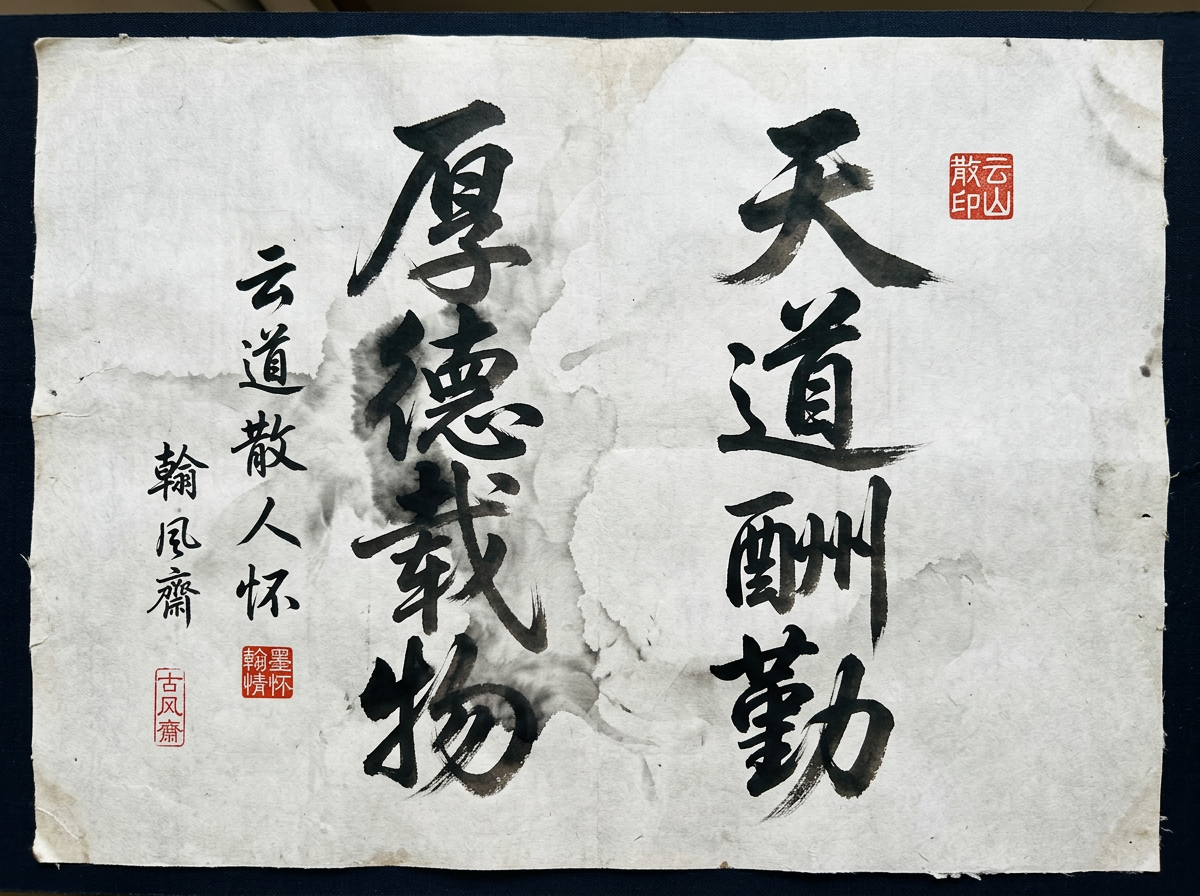 云山
散印
天道酬勤
厚德载物
云道散人怀
墨怀
翰情
翰风齋
古风齋